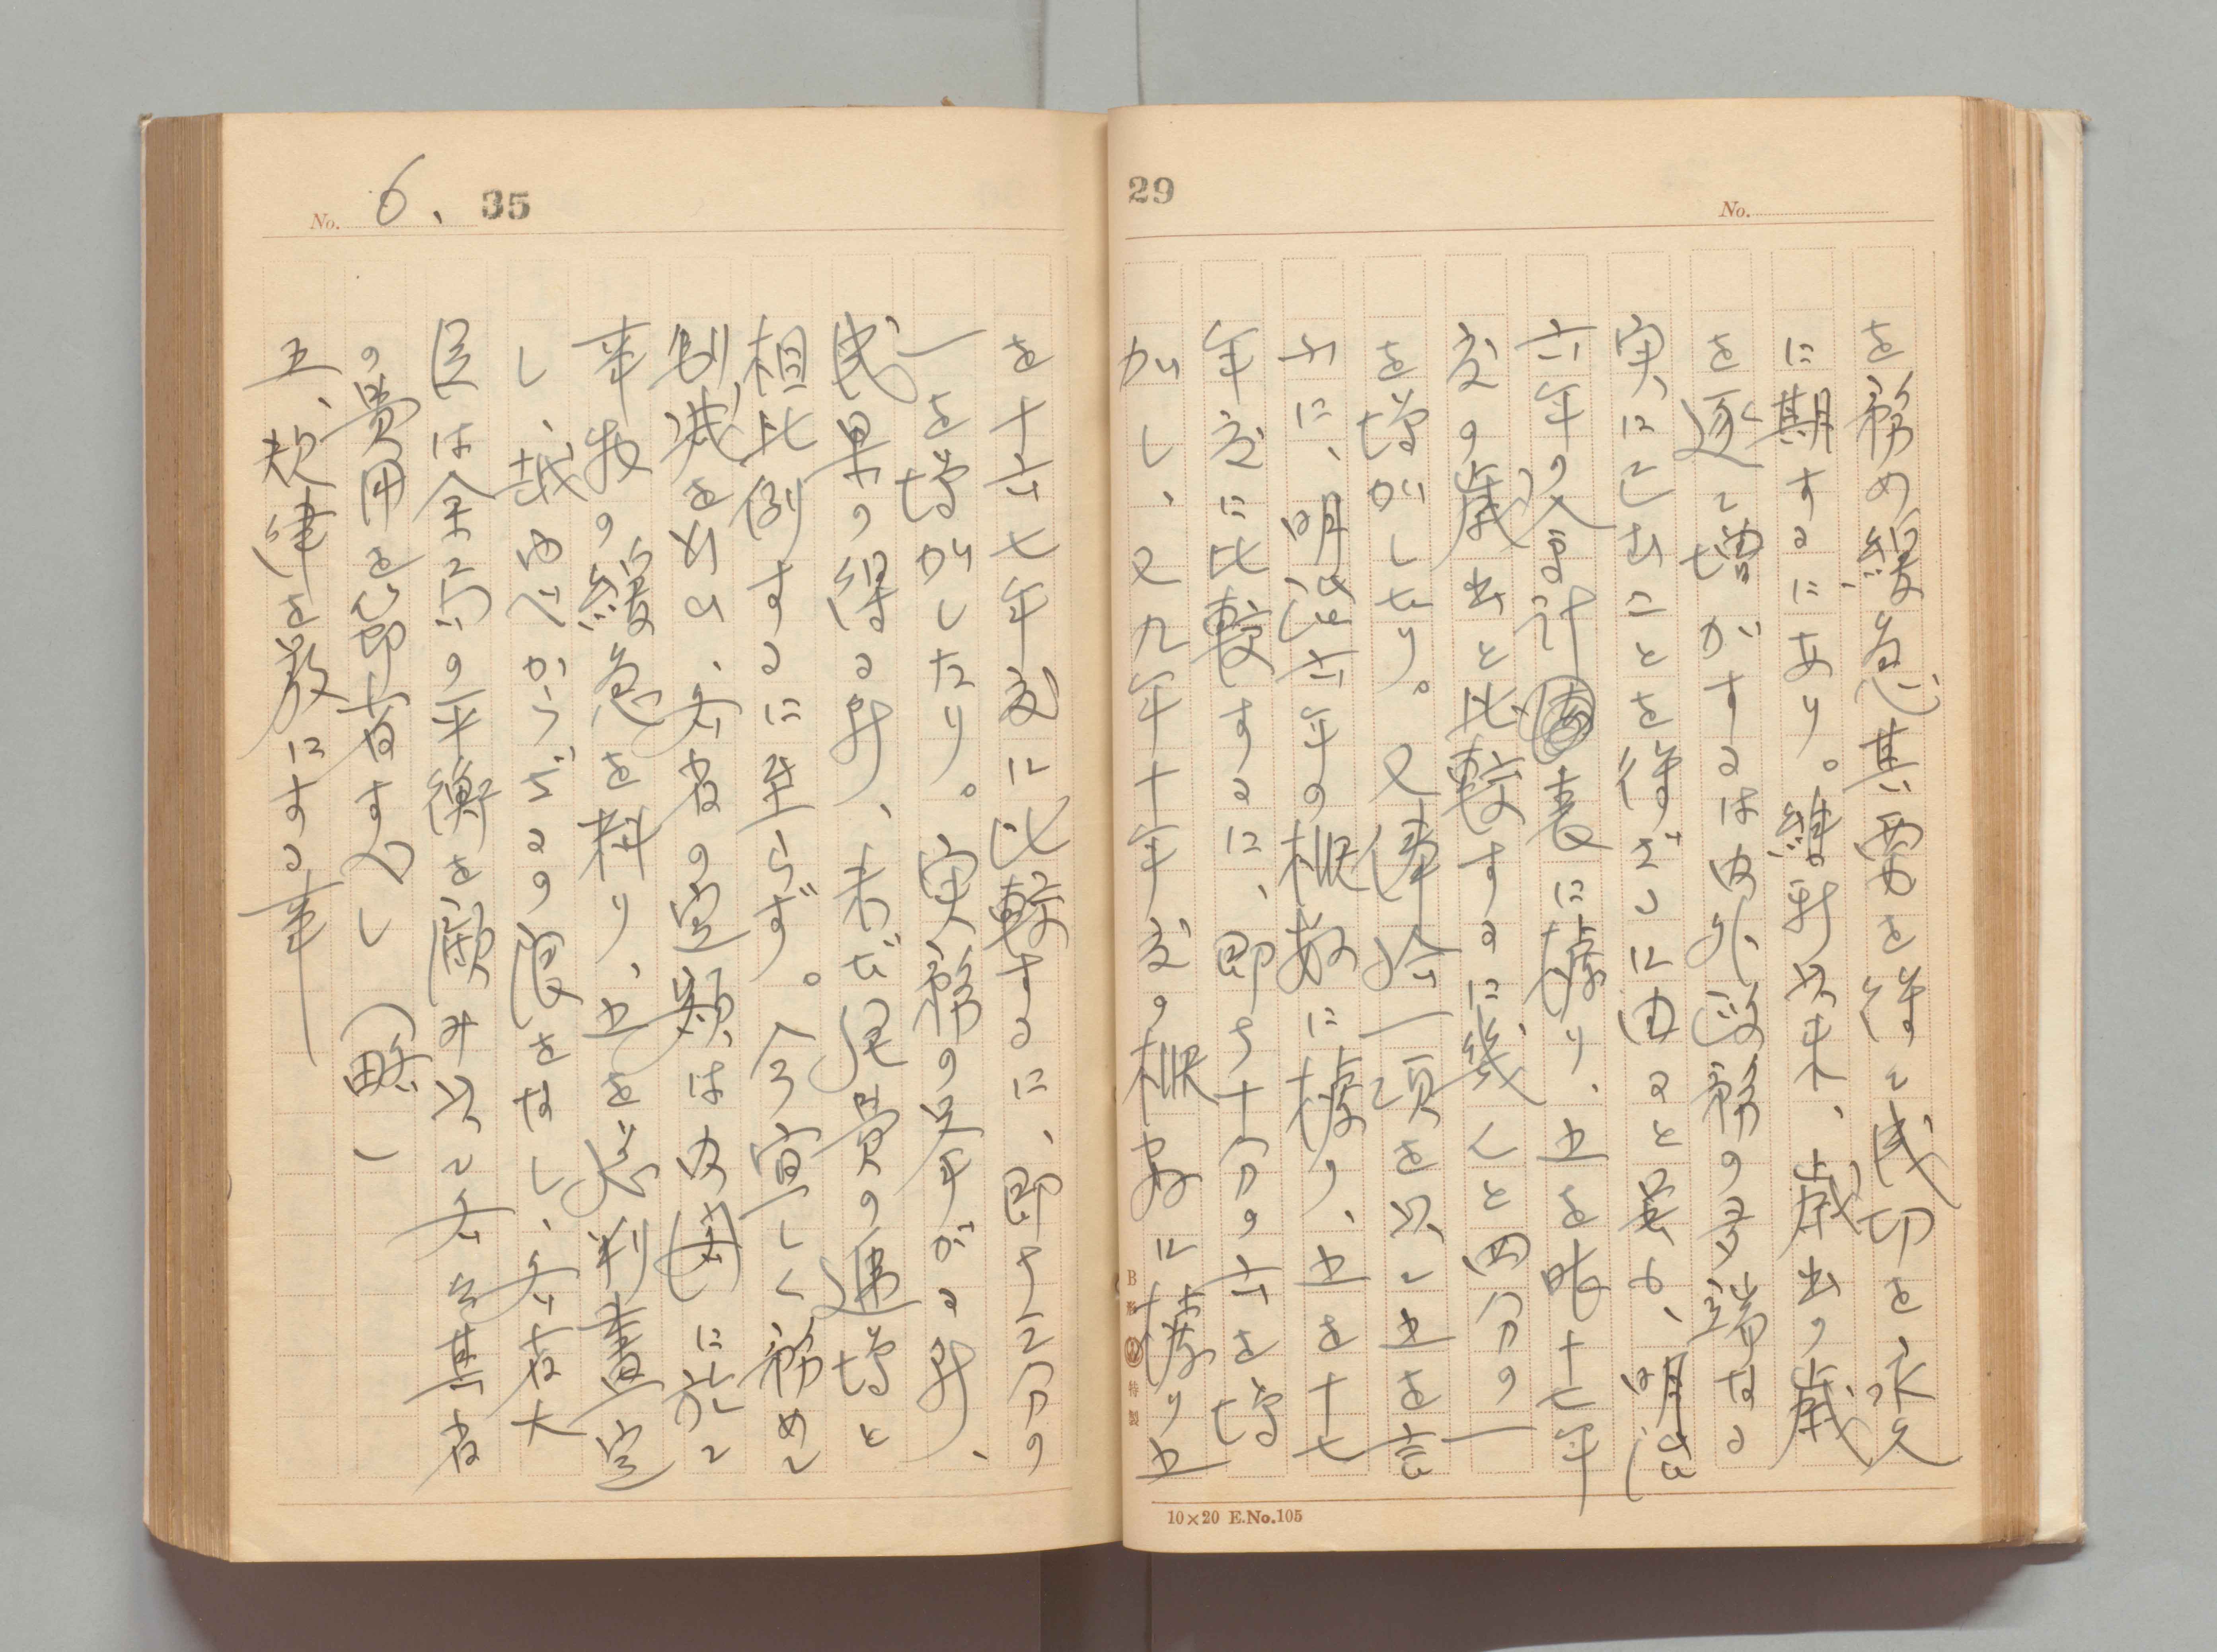 29
No.
を務め緩急其要を得て成功を永久
に期するにあり。維新以来、歳出の歳
を逐て増加するは内外政務の多端なる
実に已むことを得ざるに由ると雖も、明治
六年の会計表に拠り、之を昨十七年
度の歳出と比較するに幾んと四分の一
を増加せり。又俸給一項を以て之を言
ふに、明治六年の概数に拠り、之を十七
年度に比較するに、即ち十分の六を増
加し、又九年十年度の概算に拠り之
10×20 E.No.105
B形 特製
No. 6、 35
を十六七年度に比較するに、即ち三分の
一を増加したり。実務の挙がる所、
成果の得る所、未だ冗費の逓増と
相比例するに至らず。今宜しく務めて
刪減を加へ、各省の定額は内閣に於て
事務の緩急を料り、之を參判畫定
し、越ゆべからざるの限をなし、各省大
臣は全局の平衡を顧み以て各々其省
の費用を節省すべし (略)
五、規律を厳にする事